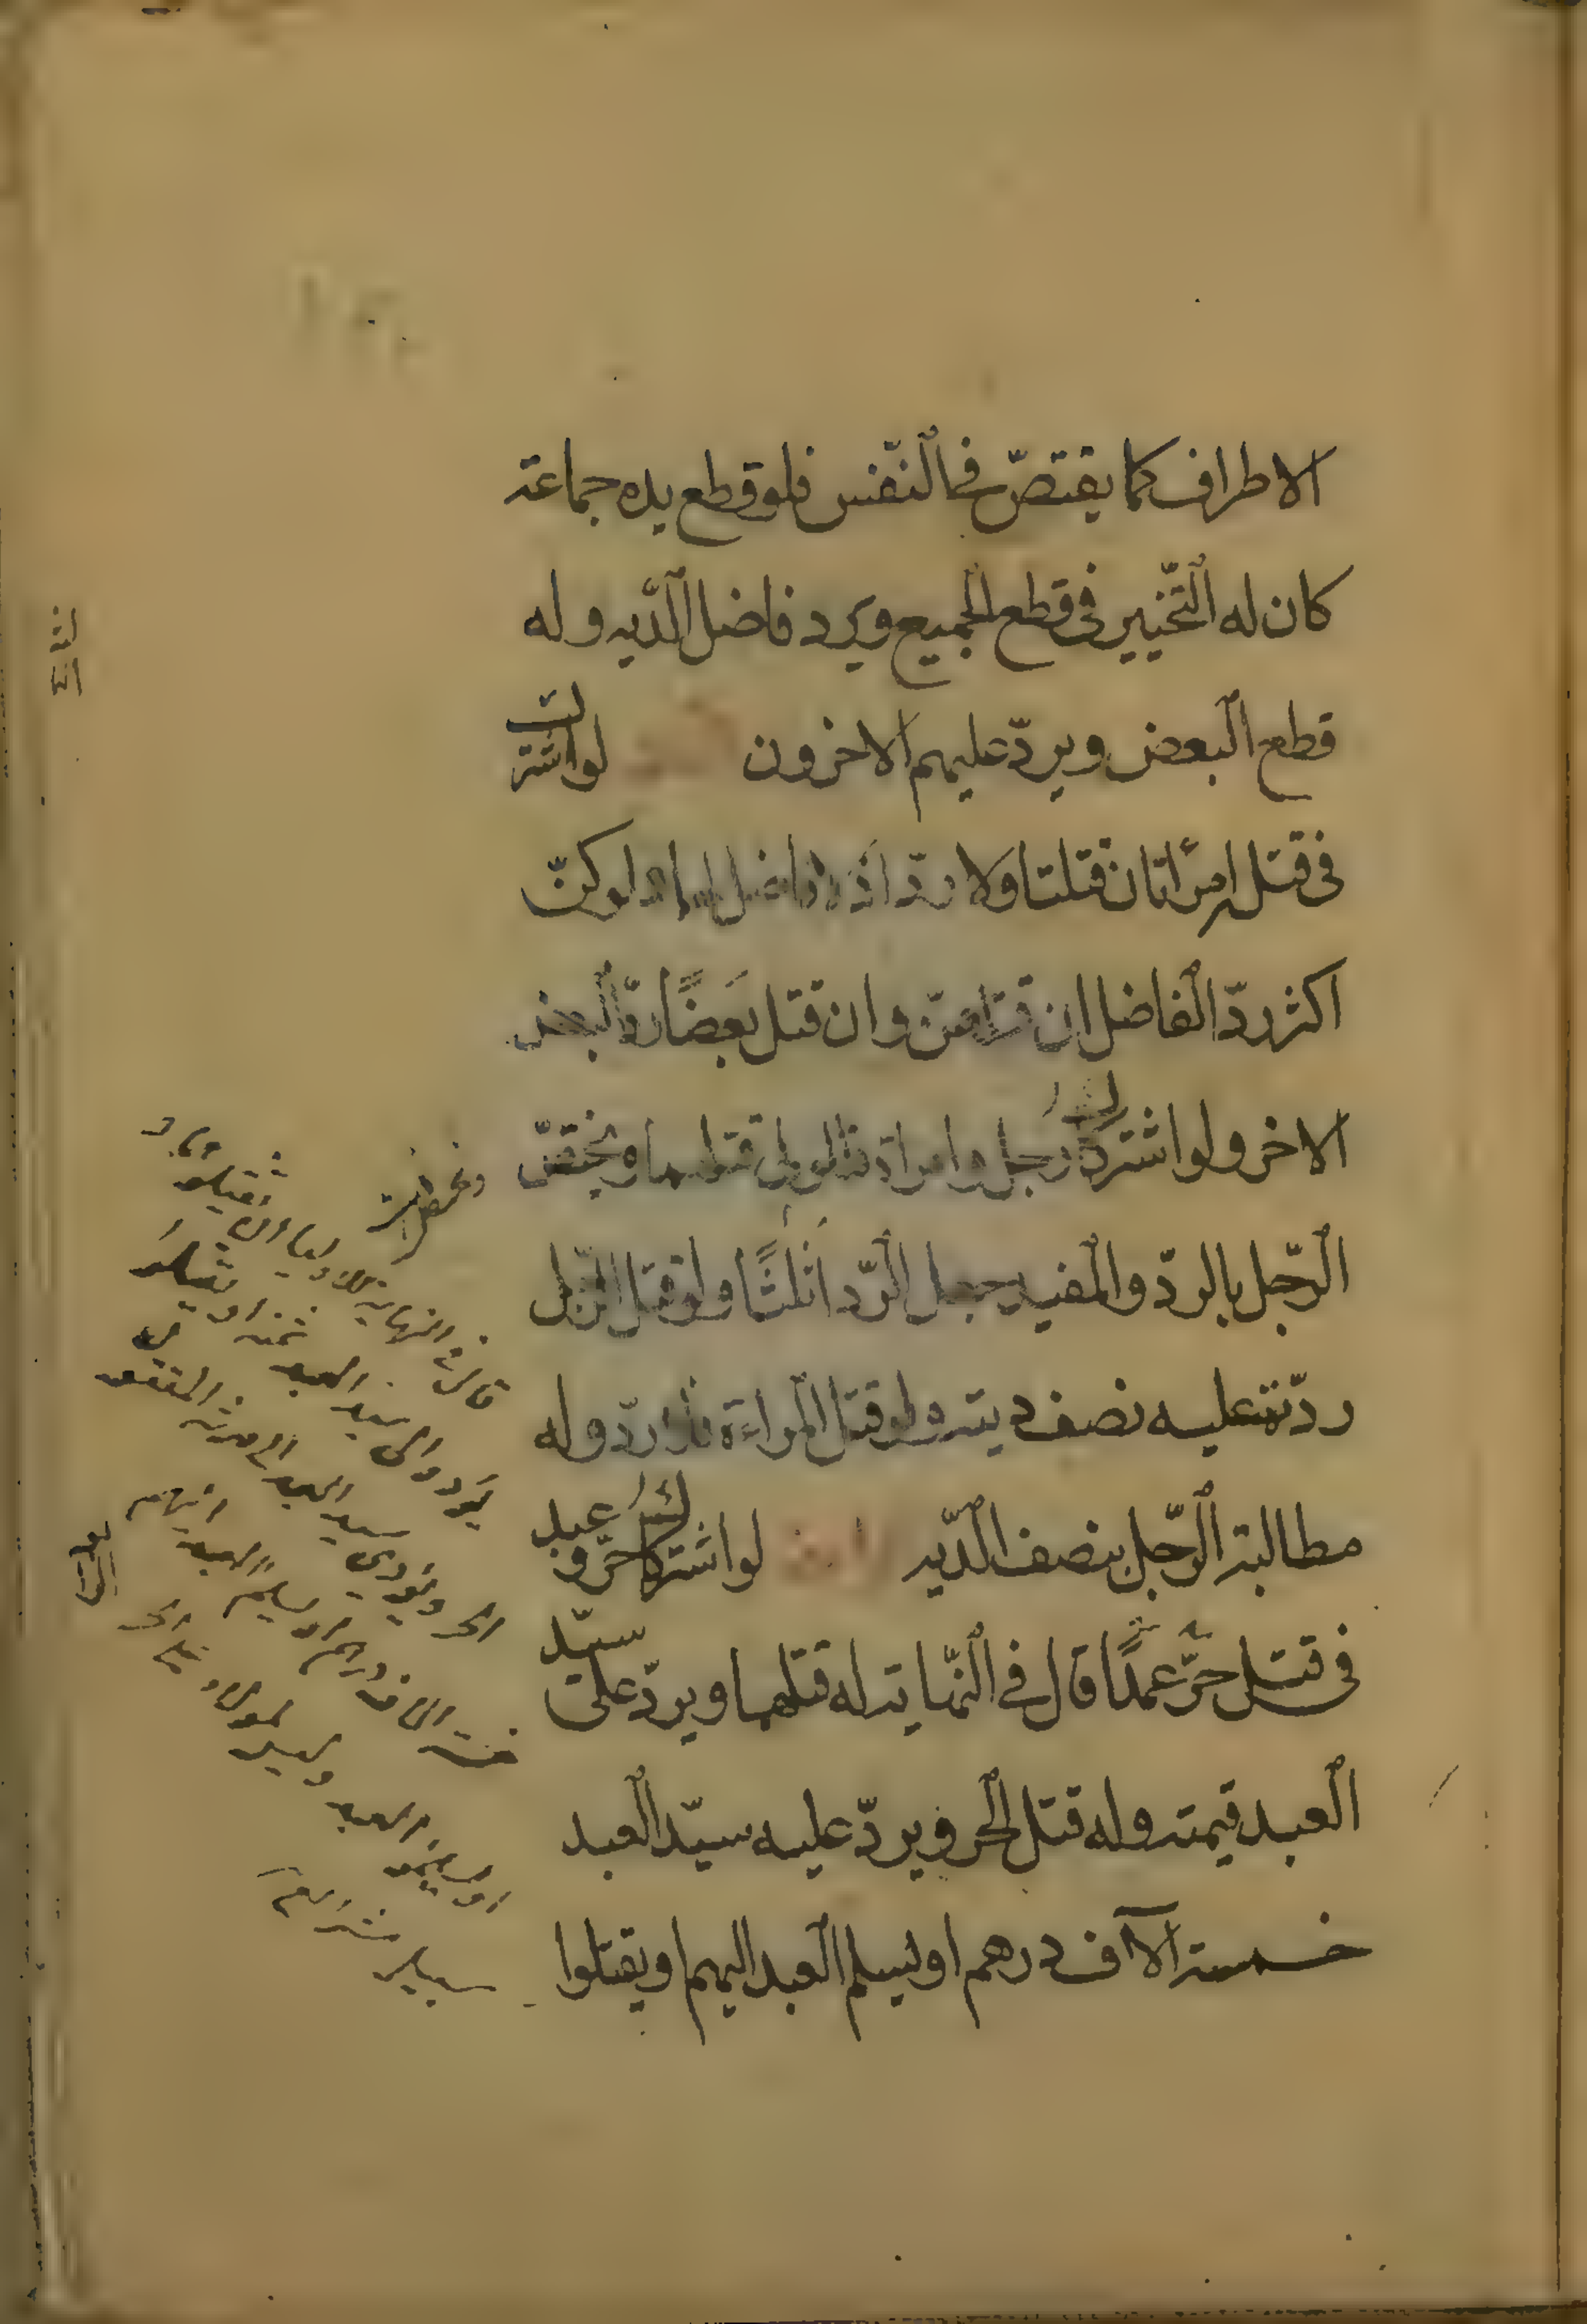 الاطراف كما يقتصّ فى النّفس فلو قطع يده جماعة
كان له التّخيير فى قطع الجميع ويرد فاضل الدّيه وله
قطع البعض ويردّ عليهم الاخرون لو اشتركت
فى قتل امرأتان قتلتا ولا ردّ اذ لا فاضل لهما ولو كنّ
اكثر ردّ الفاضل ان قتلهنّ وان قتل بعضًا ردّ البعض
الاخر ولو اشترك رجل وامراة فللولى قتلهما ويختصّ
الرّجل بالردّ والمفيد جعل الرّد اثلثًا ولو قتل الرّجل
ردّت عليه نصف ديته ولو قتل المراءة فلا ردّ وله
مطالبة الرّجل بنصف الدّيه لو اشترك حرّ وعبد
فى قتل حرّ عمدًا قال فى النّهاية له قتلهما ويردّ على سيّد
العبد قيمته وله قتل الحر ويردّ عليه سيّد العبد
خمسة الآف درهم او يسلم العبد اليهم او يقتلوا
قال فى النهاية للاولياء ان يقتلوهما و
يؤدوا الى سيد العبد ثمنه او يقتلوا
الحر ويؤدى سيد العبد الى ورثته
خمسة الاف درهم او يسلم العبد اليهم
او يقتلوا العبد وليس لمولاه على الحر
سبيل